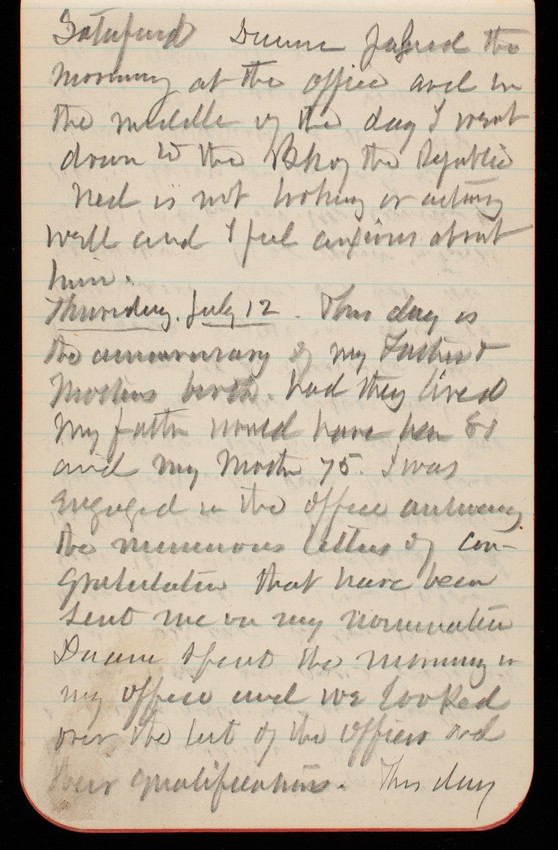 Duane passed the
morning at the office and in
the middle of the day I went
down to the Bk of the Republic
Ned is not looking or acting
well and I feel anxious about
him.
Thursday. July 12. This day is
the anniversary of my Father &
Mothers birth. had they lived
my father would have been 81
and my Mother 75. I was
engaged in the office answering
the numerous letters of con-
gratulation that have been
sent me on my nomination
Duane spent the morning in
my office and we looked
over the list of the officers and
their qualifications. This day